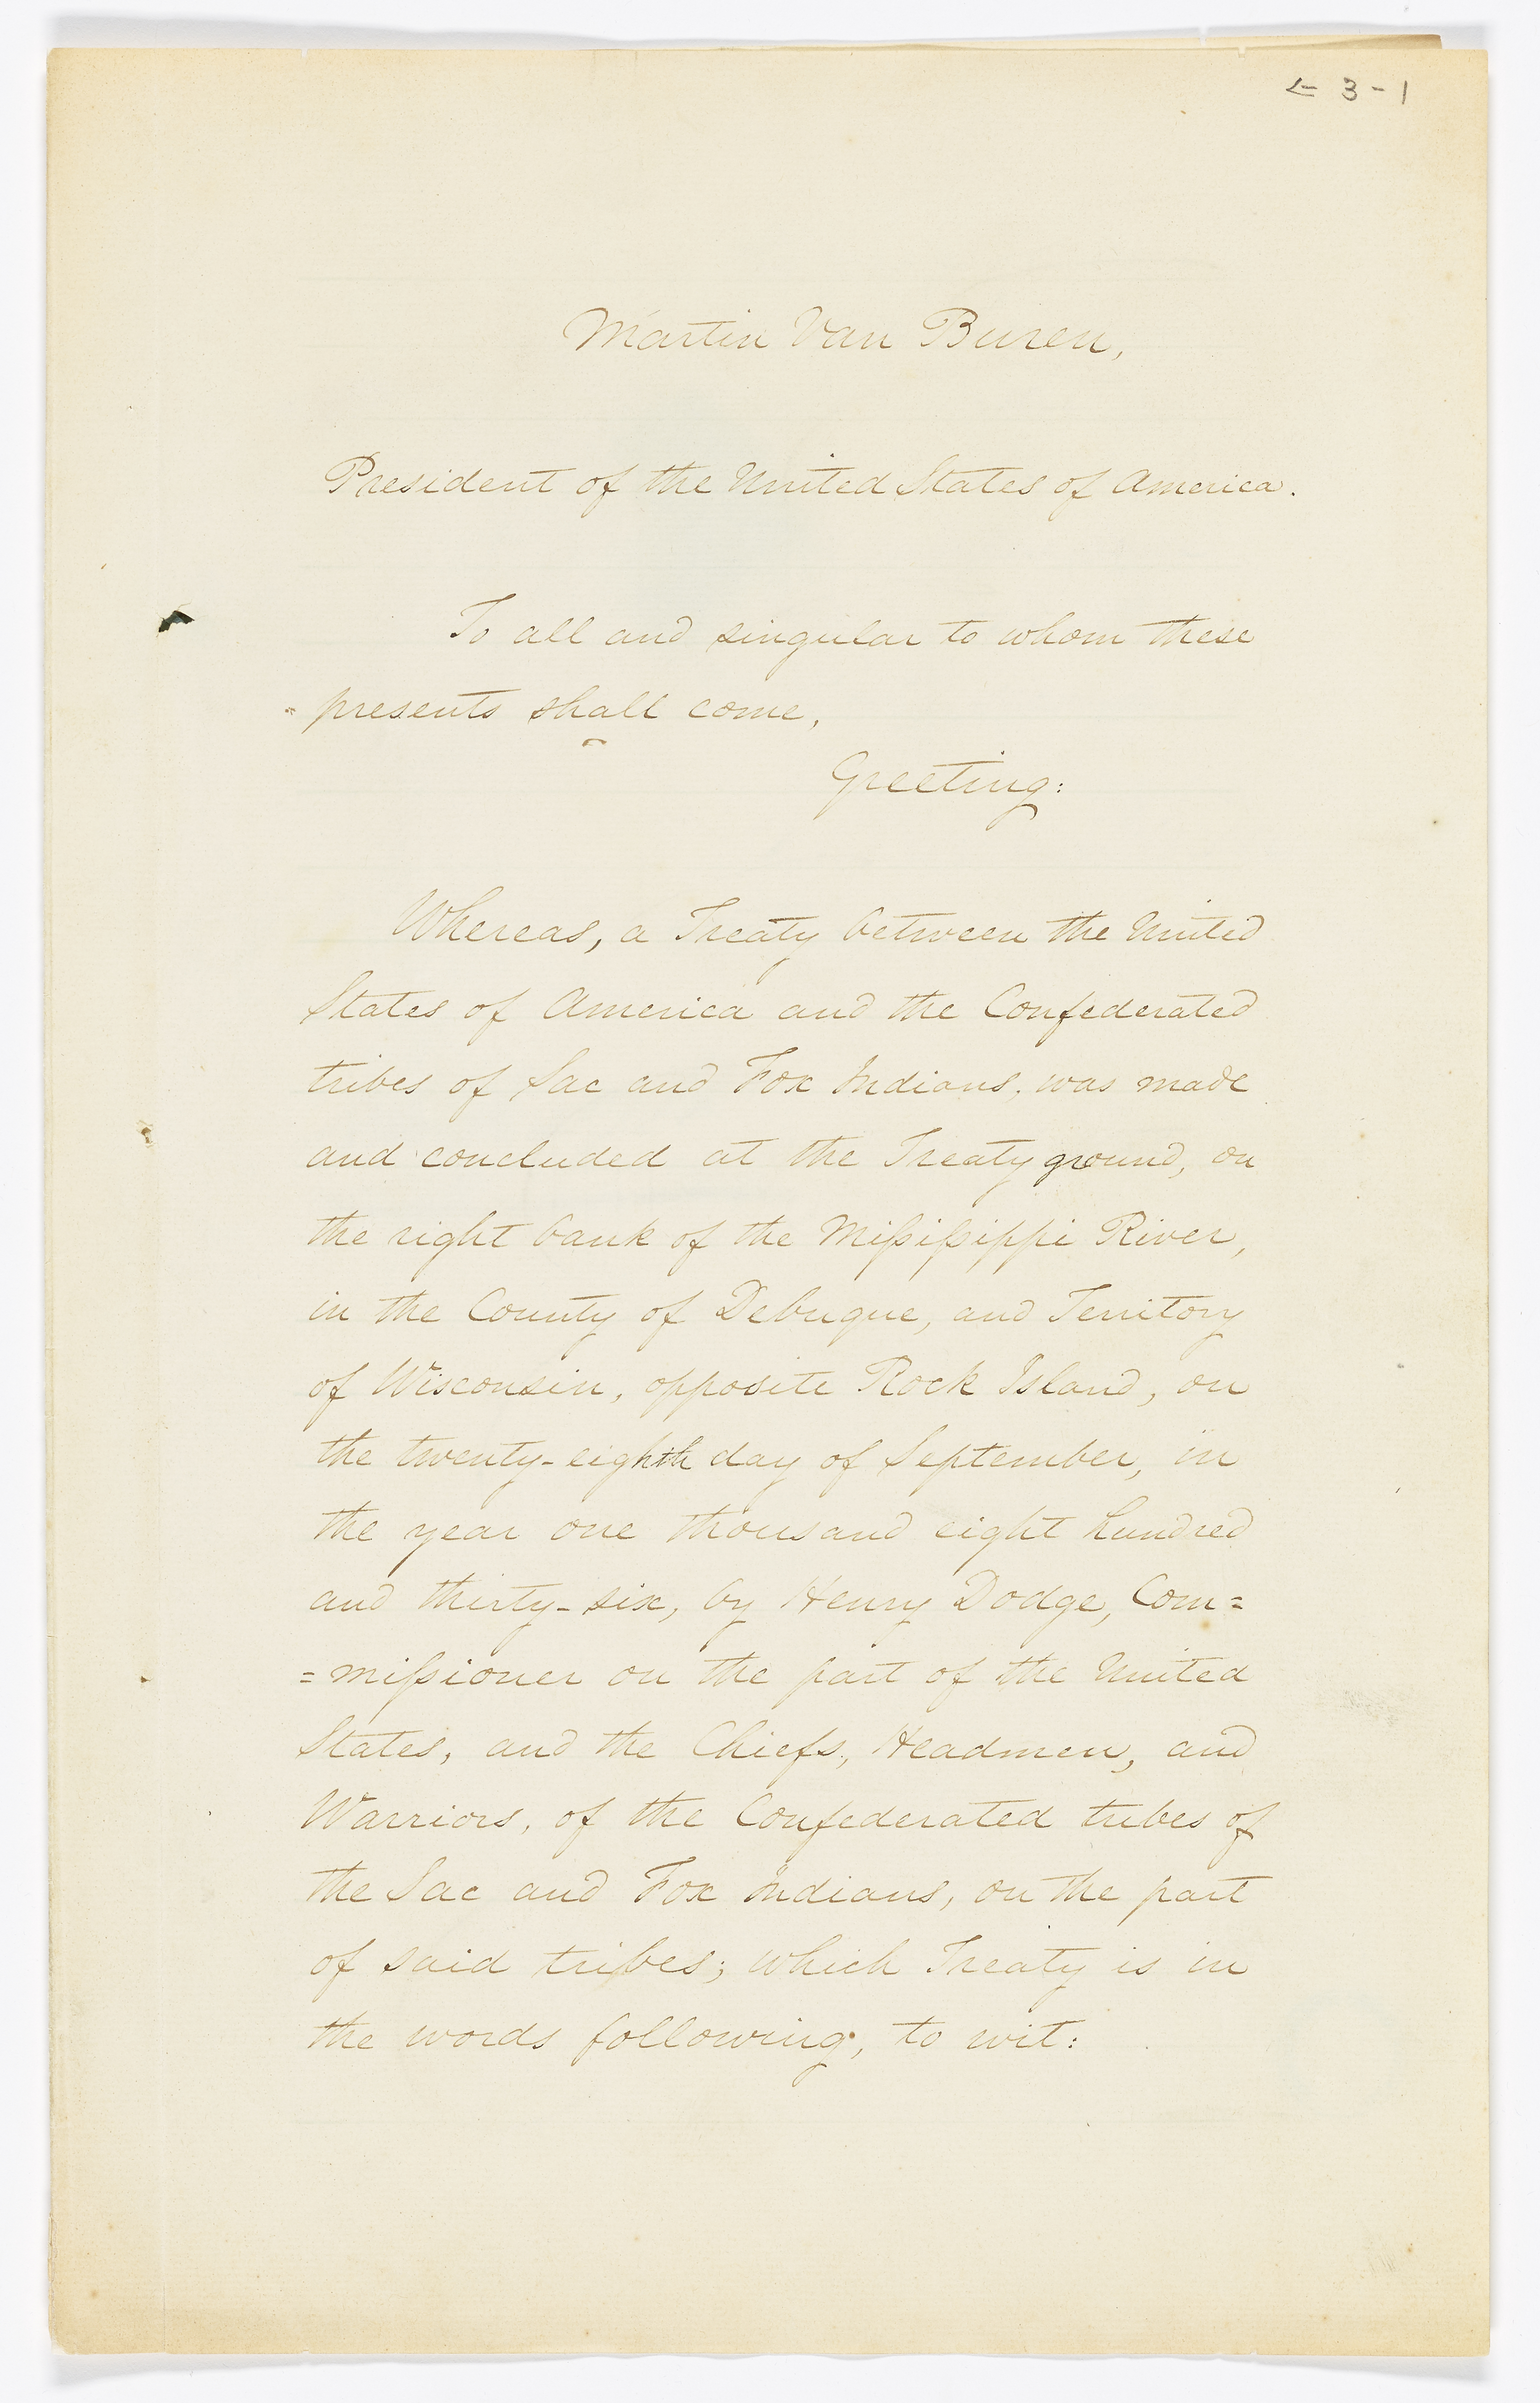 ← 3-1
Martin Van Buren,
President of the United States of America.
To all and singular to whom these
presents shall come,
Greeting:
Whereas, a Treaty between the United
States of America and the Confederated
tribes of Sac and Fox Indians, was made
and concluded at the Treaty ground, on
the right bank of the Miſsiſsippi River,
in the County of Debuque, and Territory
of Wisconsin, opposite Rock Island, on
the twenty-eighth day of September, in
the year one thousand eight hundred
and thirty-six, by Henry Dodge, Com=
=miſsioner on the part of the United
States, and the Chiefs, Headmen, and
Warriors, of the Confederated tribes of
the Sac and Fox Indians, on the part
of said tribes; which Treaty is in
the words following, to wit: